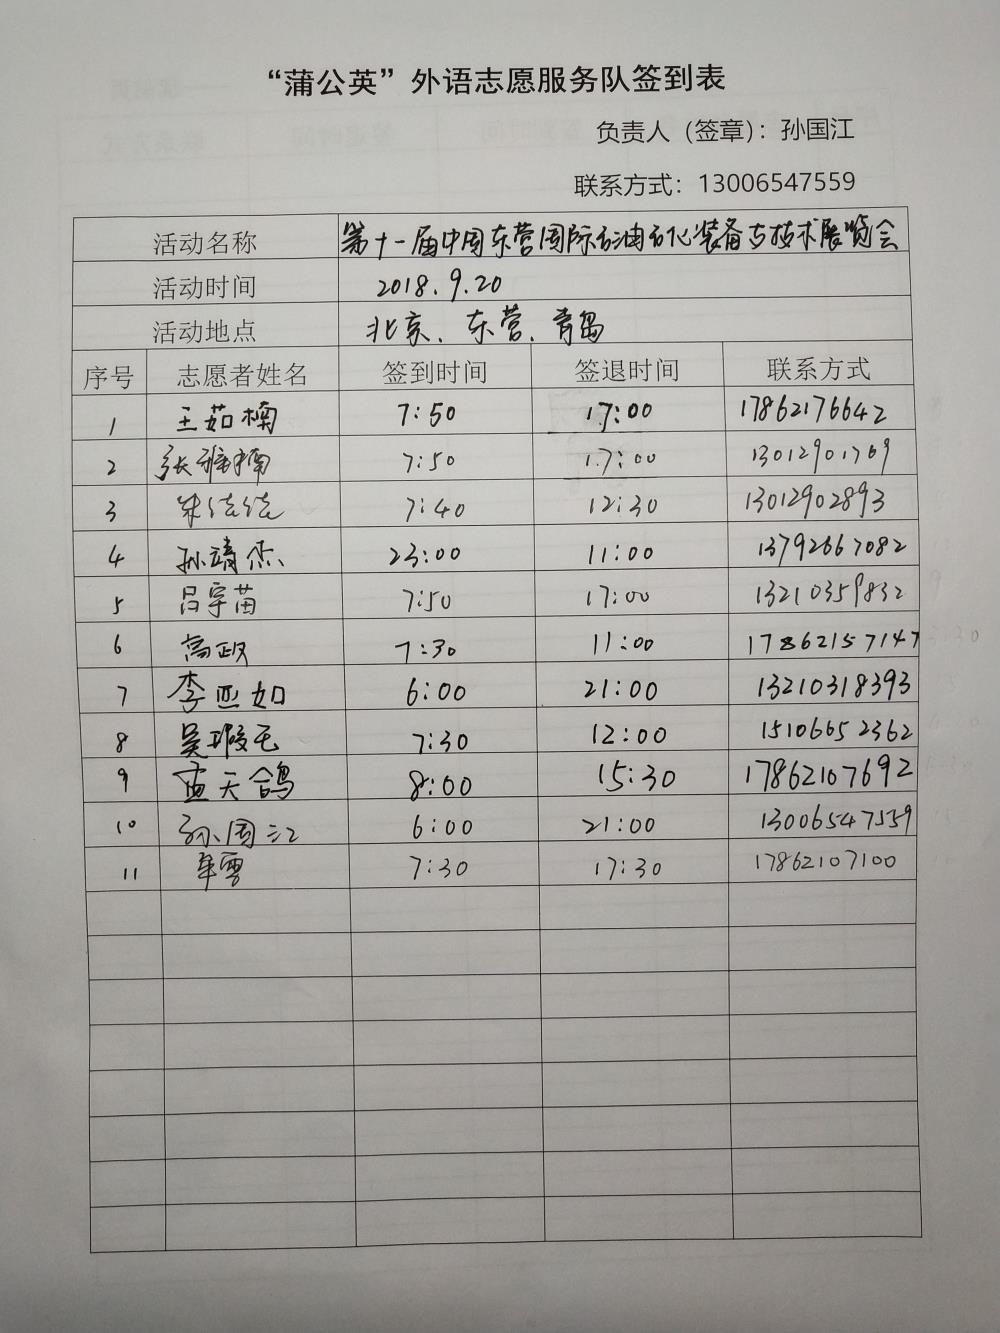 “蒲公英”外语志愿服务队签到表
负责人（签章）：孙国江
联系方式：13006547559
活动名称 第十一届中国东营国际石油石化装备与技术展览会
活动时间 2018.9.20
活动地点 北京、东营、青岛
序号 志愿者姓名 签到时间 签退时间 联系方式
1 王茹楠 7:50 17:00 17862176642
2 张 楠 7:50 17:00 13012901769
3 朱佳佳 7:40 12:30 13012902893
4 孙靖杰 23:00 11:00 13792667082
5 吕宇苗 7:50 17:00 13210359832
6 高政 7:30 11:00 17862157147
7 李亚如 6:00 21:00 13210318393
8 吴 7:30 12:00 15106652362
9 蓝天鸽 8:00 15:30 17862107692
10 孙国江 6:00 21:00 13006547559
11 牟雪 7:30 17:30 17862107100